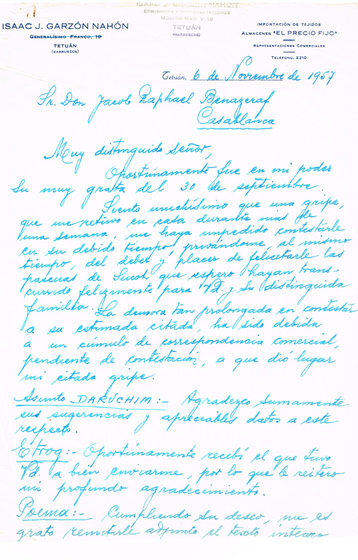 ISAAC J. GARZÓN NAHÓN
GENERALÍSIMO FRANCO, 19
TETUÁN
(MARRUECOS)
ISAAC J. GARZON NAHON
TETUÁN
(MARRUECOS)
IMPORTACIÓN DE TEJIDOS
ALMACENES "EL PRECIO FIJO"
REPRESENTACIONES COMERCIALES
TELÉFONO, 2210
Tetuán, 6 de Noviembre de 1957
Sr. Don Jacob Raphael Benazeraf
Casablanca
Muy distinguido Señor,
Oportunamente fue en mi poder
Su muy grata del 30 de septiembre.
Siento muchísimo que una gripe,
que me retuvo en casa durante más de
una semana, me haya impedido contestarle
en su debido tiempo privándome, al mismo
tiempo, del deber y placer de felicitarle las
pascuas de Sucot que espero hayan trans-
currido felizmente para Vd. y Su distinguida
familia. La demora tan prolongada en contestar
a su estimada citada, ha sido debida
a un cúmulo de correspondencia comercial,
pendiente de contestación, a que dió lugar
mi citada gripe.
Asunto DARUCHIM:- Agradezco sumamente
sus sugerencias y apreciables datos a este
respecto.
Etrog:- Oportunamente recibí el que tuvo
Vd. a bien enviarme, por lo que le reitero
mi profundo agradecimiento.
Poema:- Cumpliendo Su deseo, me es
grato remitirle adjunto el texto íntegro